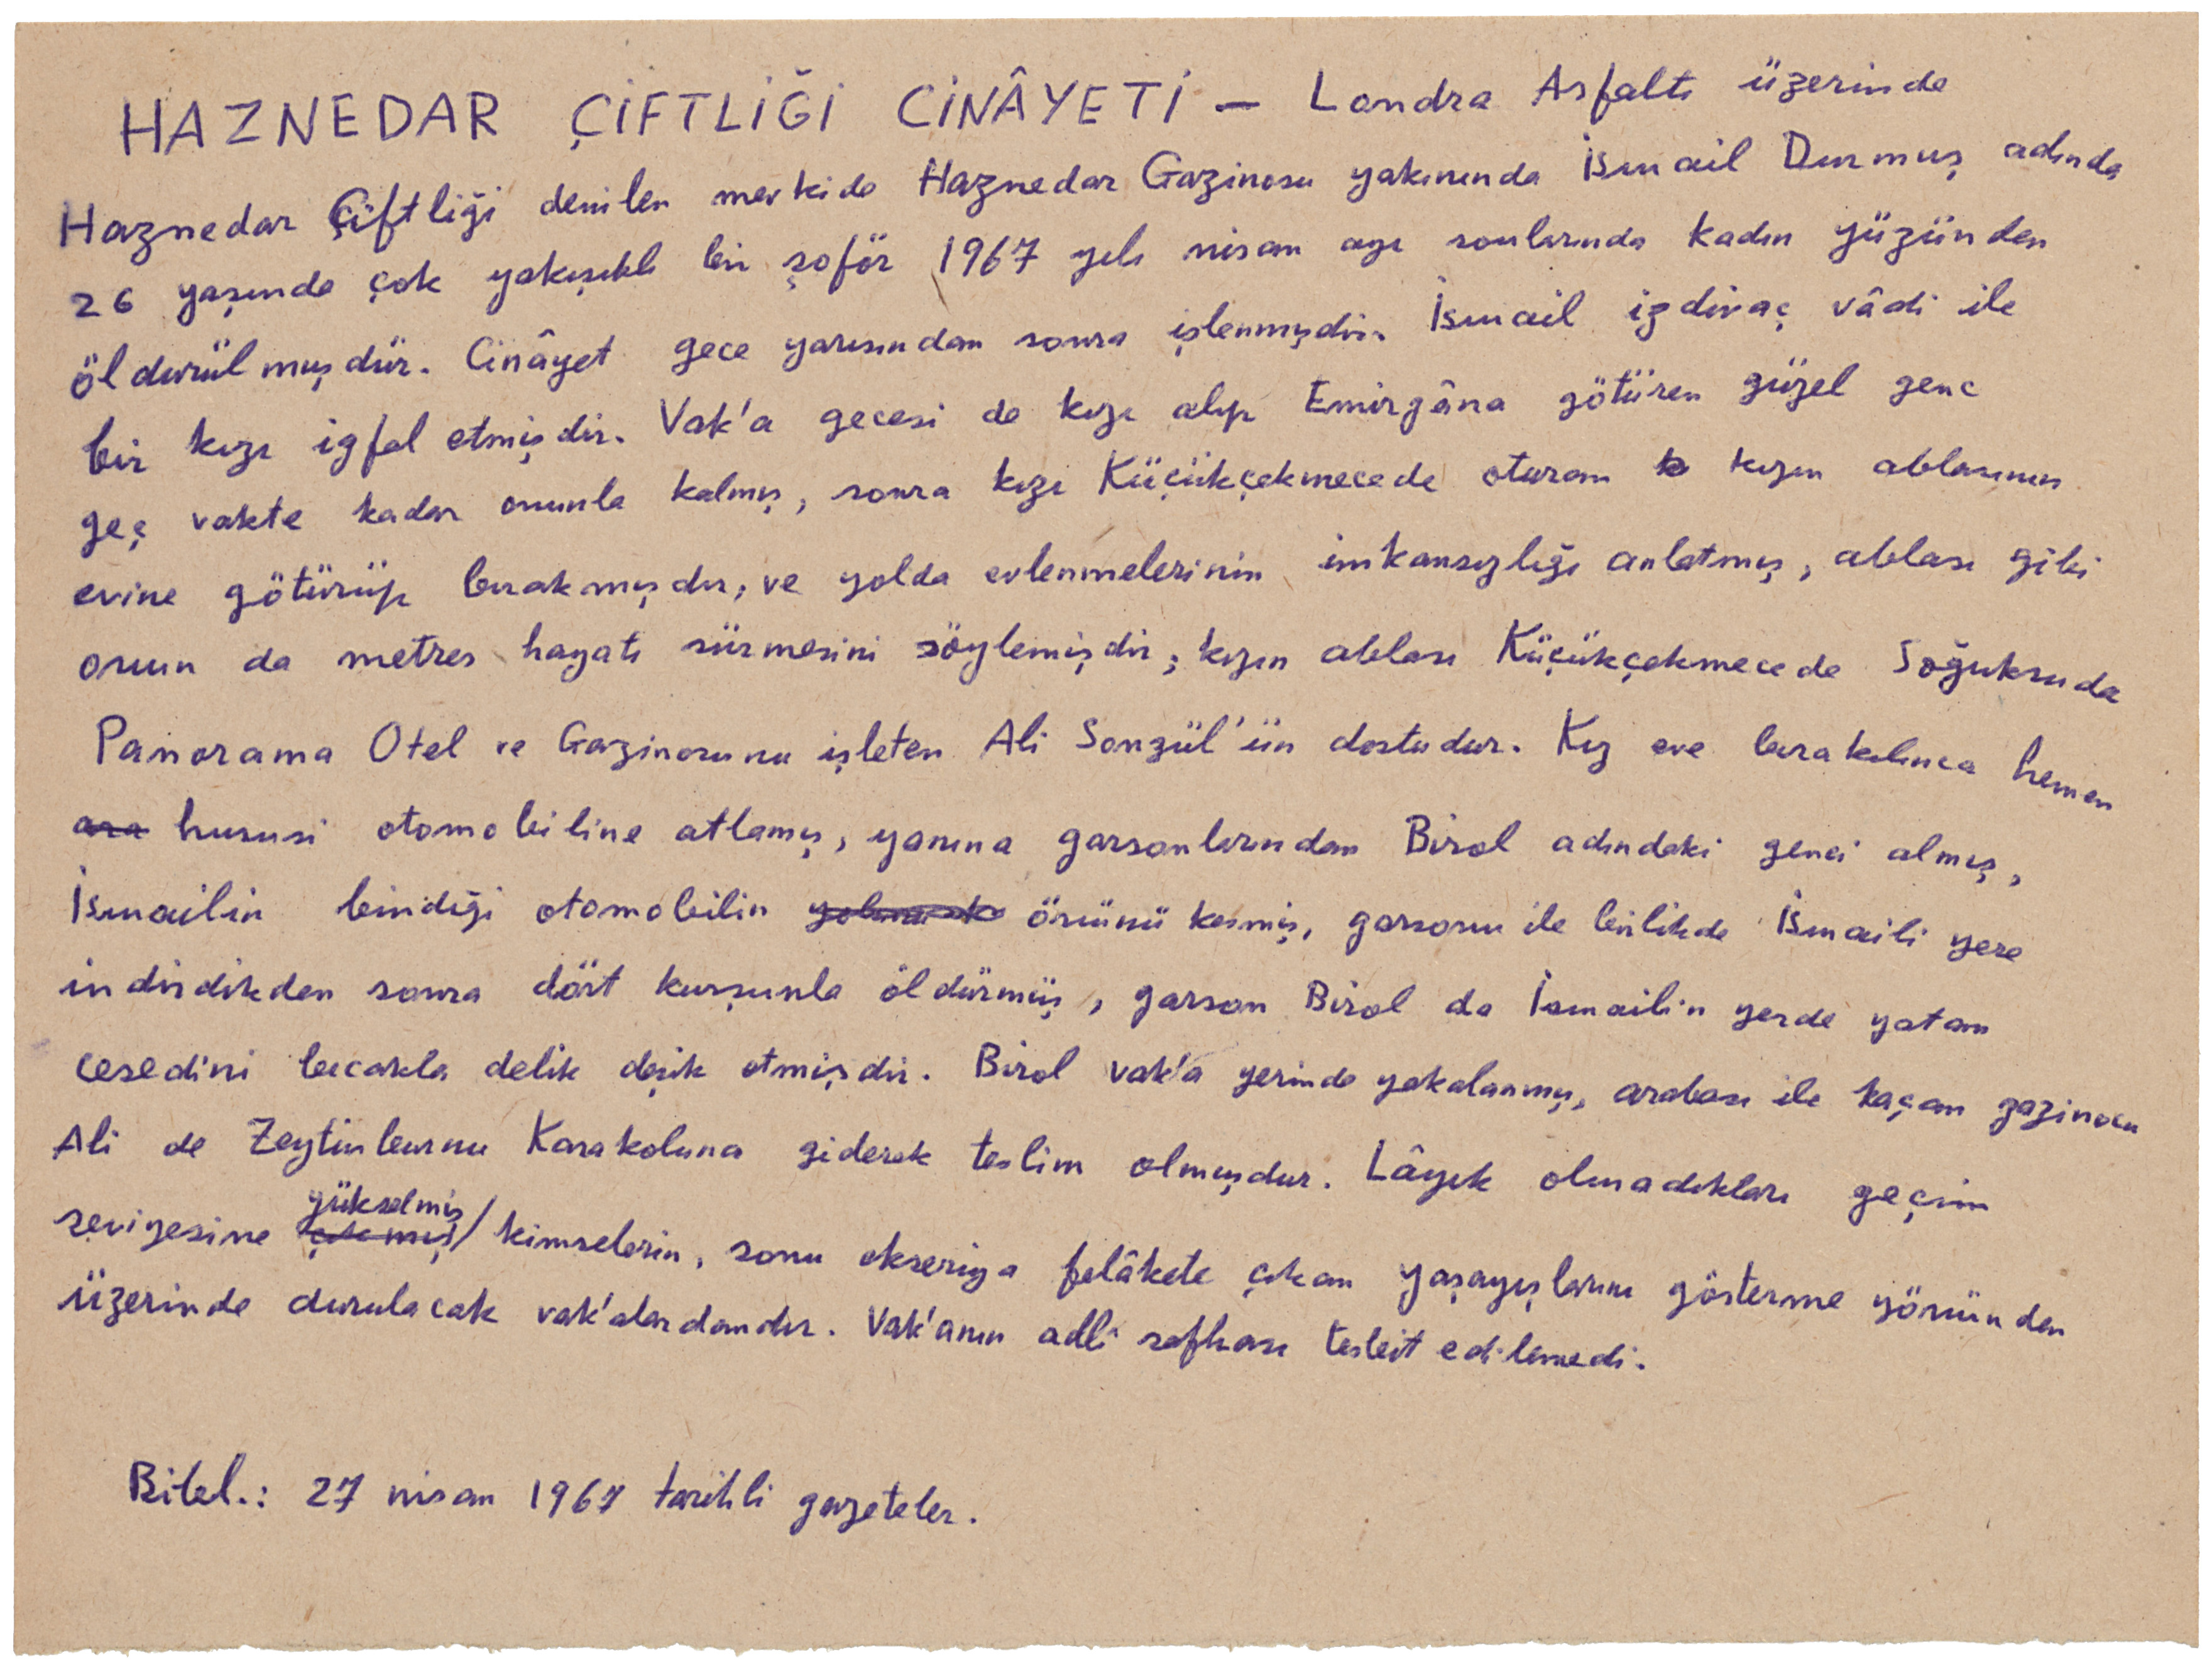 HAZNEDAR ÇİFTLİĞİ CİNÂYETİ — Londra Asfaltı üzerinde
Haznedar Çiftliği denilen mevkide Haznedar Gazinosu yakınında İsmail Durmuş adında
26 yaşında çok yakışıklı bir şoför 1967 yılı nisan ayı sonlarında kadın yüzünden
öldürülmüşdür. Cinâyet gece yarısından sonra işlenmişdir. İsmail izdivaç vâdi ile
bir kızı igfal etmişdir. Vak'a gecesi de kızı alıp Emirgâna götüren güzel genc
geç vakte kadar onunla kalmış, sonra kızı Küçükçekmecede oturan kızın ablasının
evine götürüp bırakmışdır, ve yolda evlenmelerinin imkansızlığı anlatmış, ablası gibi
onun da metres hayatı sürmesini söylemişdir; kızın ablası Küçükçekmecede Soğuksuda
Panorama Otel ve Gazinosunu işleten Ali Songül'ün dostudur. Kız eve bırakılınca hemen
ara hususi otomobiline atlamış, yanına garsonlarından Birol adındaki genci almış,
İsmailin bindiği otomobilin önünü kesmiş, garsonu ile birlikde İsmaili yere
indirdikden sonra dört kurşunla öldürmüş, garson Birol da İsmailin yerde yatan
cesedini bıcakla delik deşik etmişdir. Birol vak'a yerinde yakalanmış, arabası ile kaçan gazinocu
Ali de Zeytinburnu Karakoluna giderek teslim olmuşdur. Lâyık olmadıkları geçim
seviyesine yükselmiş kimselerin, sonu ekseriya felâkete çıkan yaşayışlarını gösterme yönünden
üzerinde durulacak vak'alardandır. Vak'anın adlî safhası tesbit edilemedi.
Bibl.: 27 nisan 1967 tarihli gazeteler.